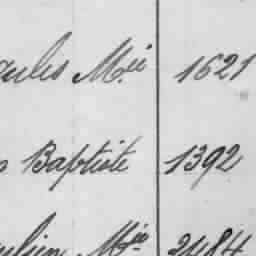 Jules M.ie 1621
Baptiste 1392
Julien M.ie 2484